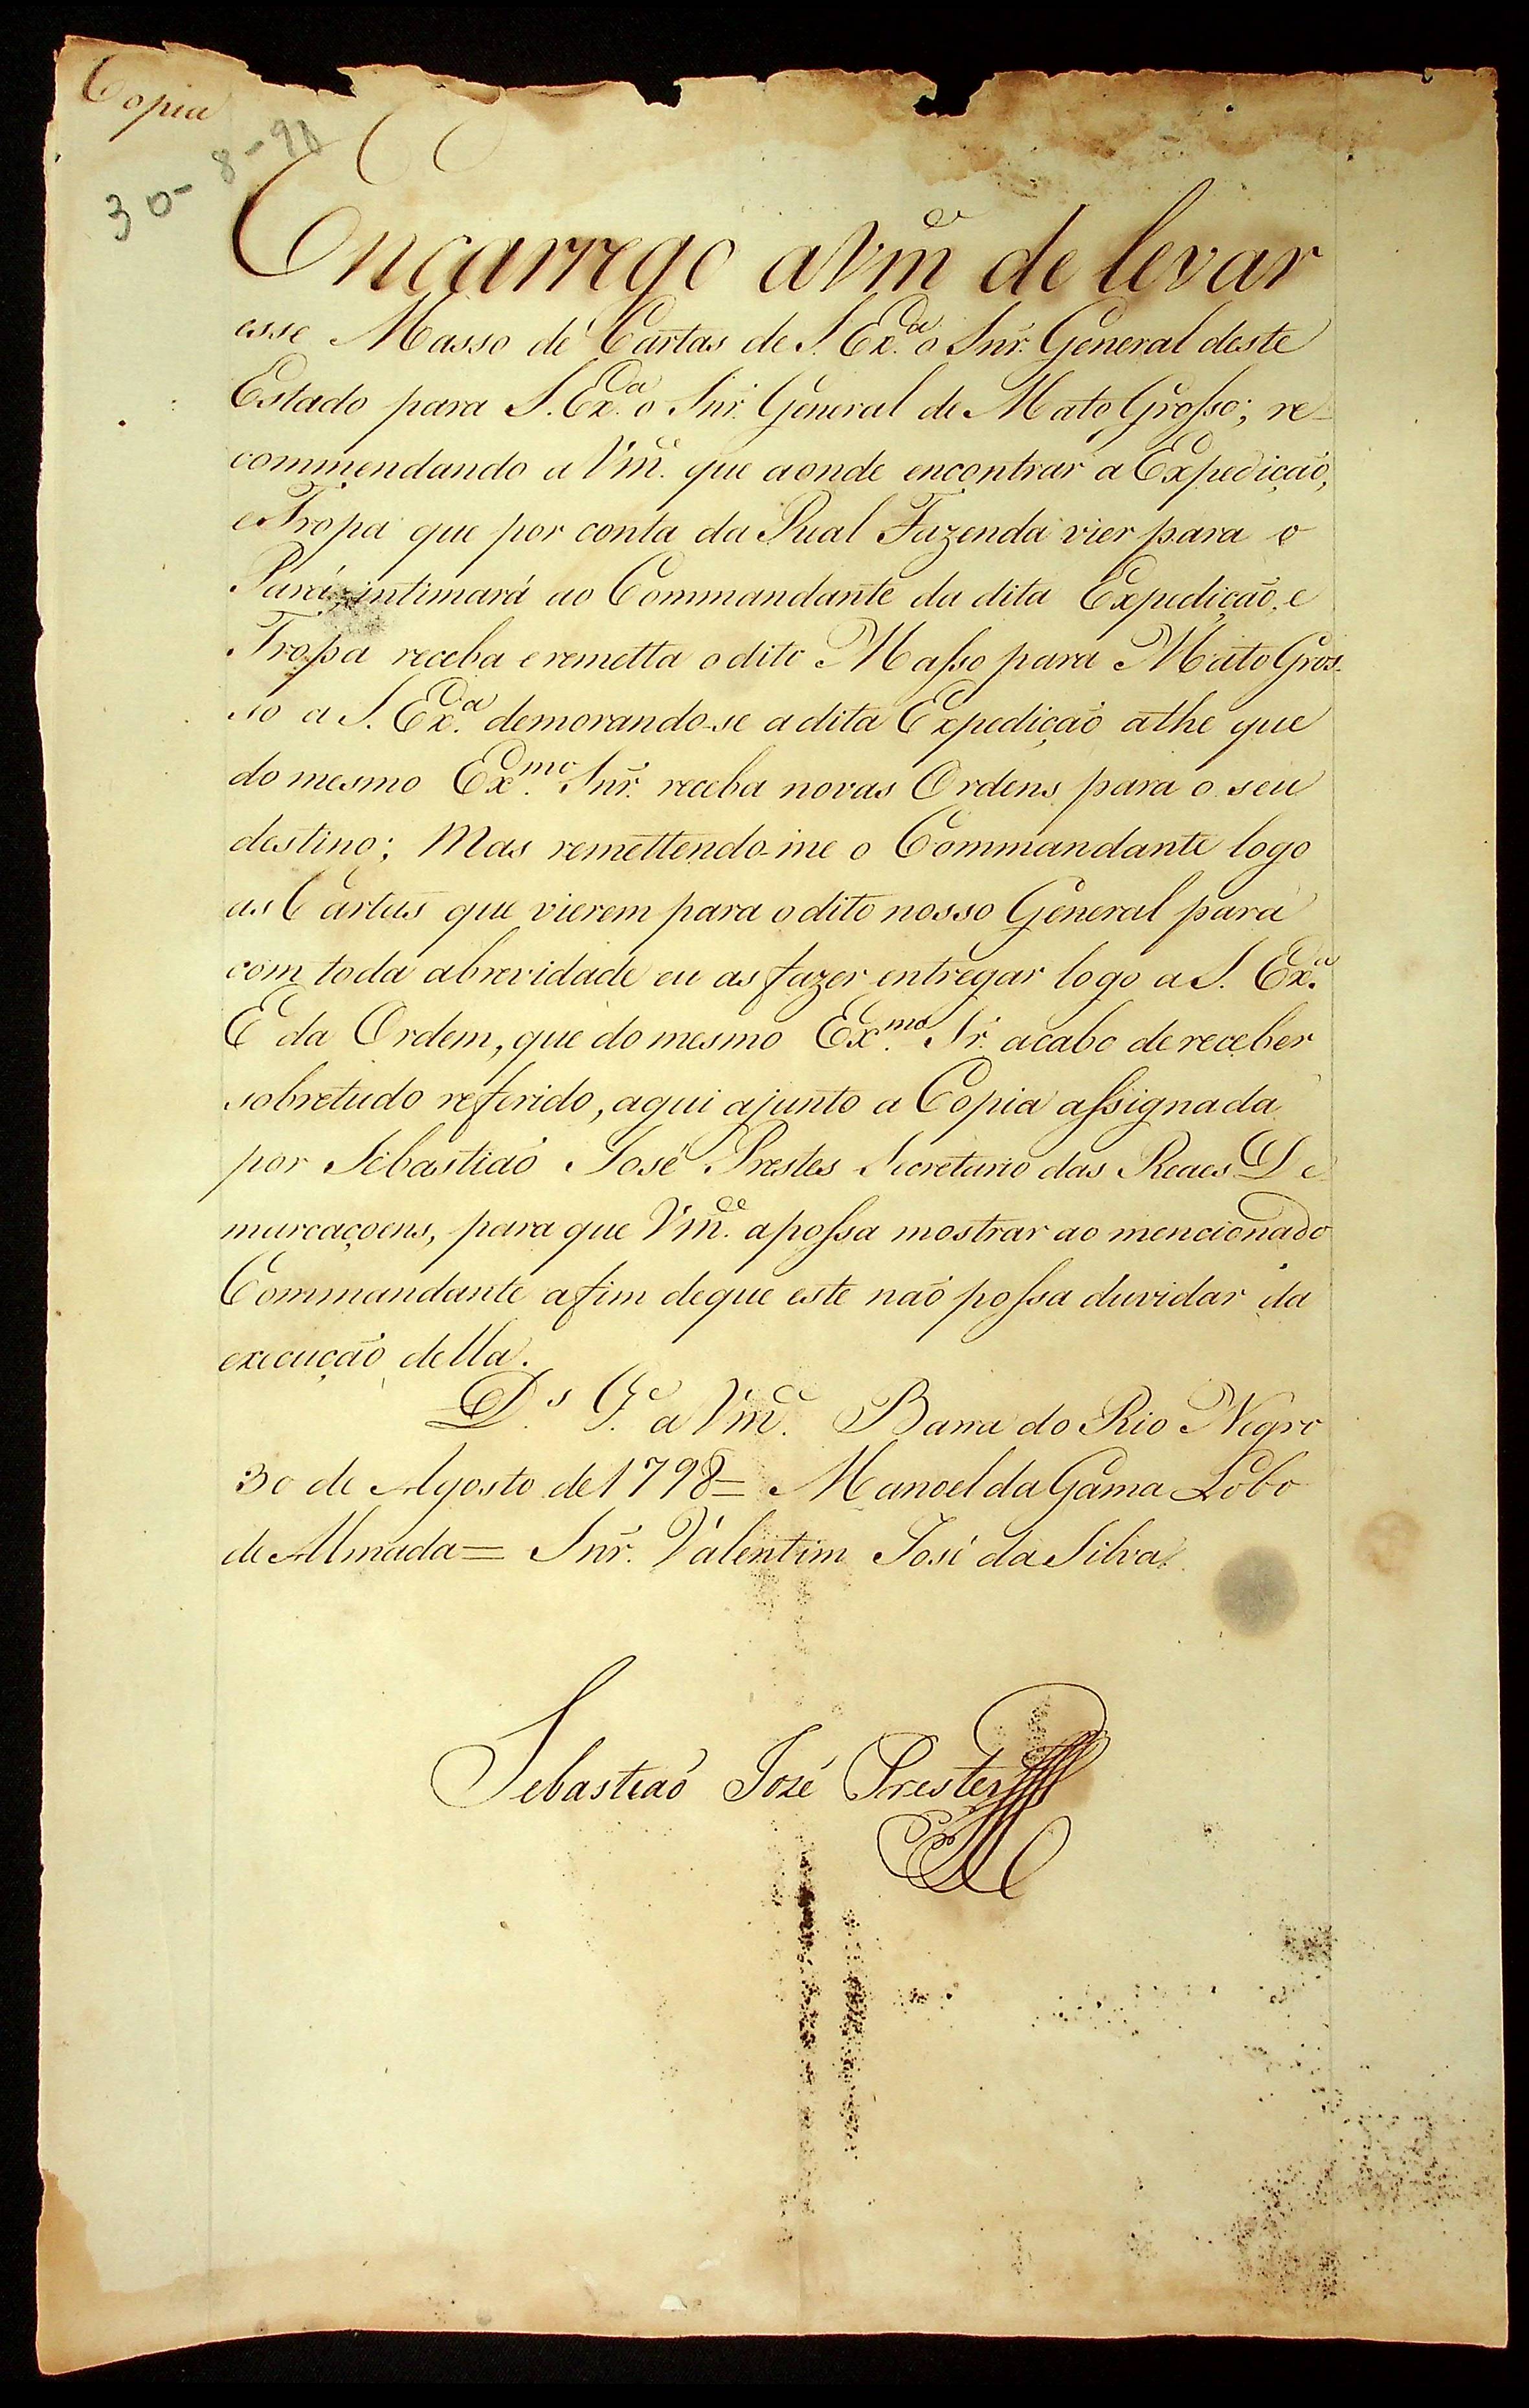 Copia
30-8-98
Encarrego a Vm^ce de levar
esse Masso de Cartas de S. Ex.^a o Snr. General deste
Estado para S. Ex.^a o Snr. General de Mato Grosso; re-
commendando a Vm^ce. que aonde encontrar a Expedição,
e Tropa que por conta da Rual Fazenda vier para o
Pará, intimará ao Commandante da dita Expedição, e
Tropa receba e remetta o dito Masso para Mato Gros-
so a S. Ex.^a demorando-se a dita Expedição athe que
do mesmo Ex.^mo Snr. receba novas Ordens para o seu
destino; Mas remettendo-me o Commandante logo
as Cartas que vierem para o dito nosso General para
com toda abrevidade eu as fazer entregar logo a S. Ex.^a
E da Ordem, que do mesmo Ex.^mo Sr. acabo de receber
sobretudo referido, aqui ajunto a Copia assignada
por Sebastiaõ José Prestes Secretario das Reaes De-
marcaçoens, para que Vm^ce. a possa mostrar ao mencionado
Commandante afim deque este naõ possa duvidar da
execuçaõ della.
D.^s G.^e a Vm^ce. Barra do Rio Negro
30 de Agosto de 1798= Manoel da Gama Lobo
de Almada= Snr. Valentim José da Silva.
Sebastiaõ Jozé Prestes